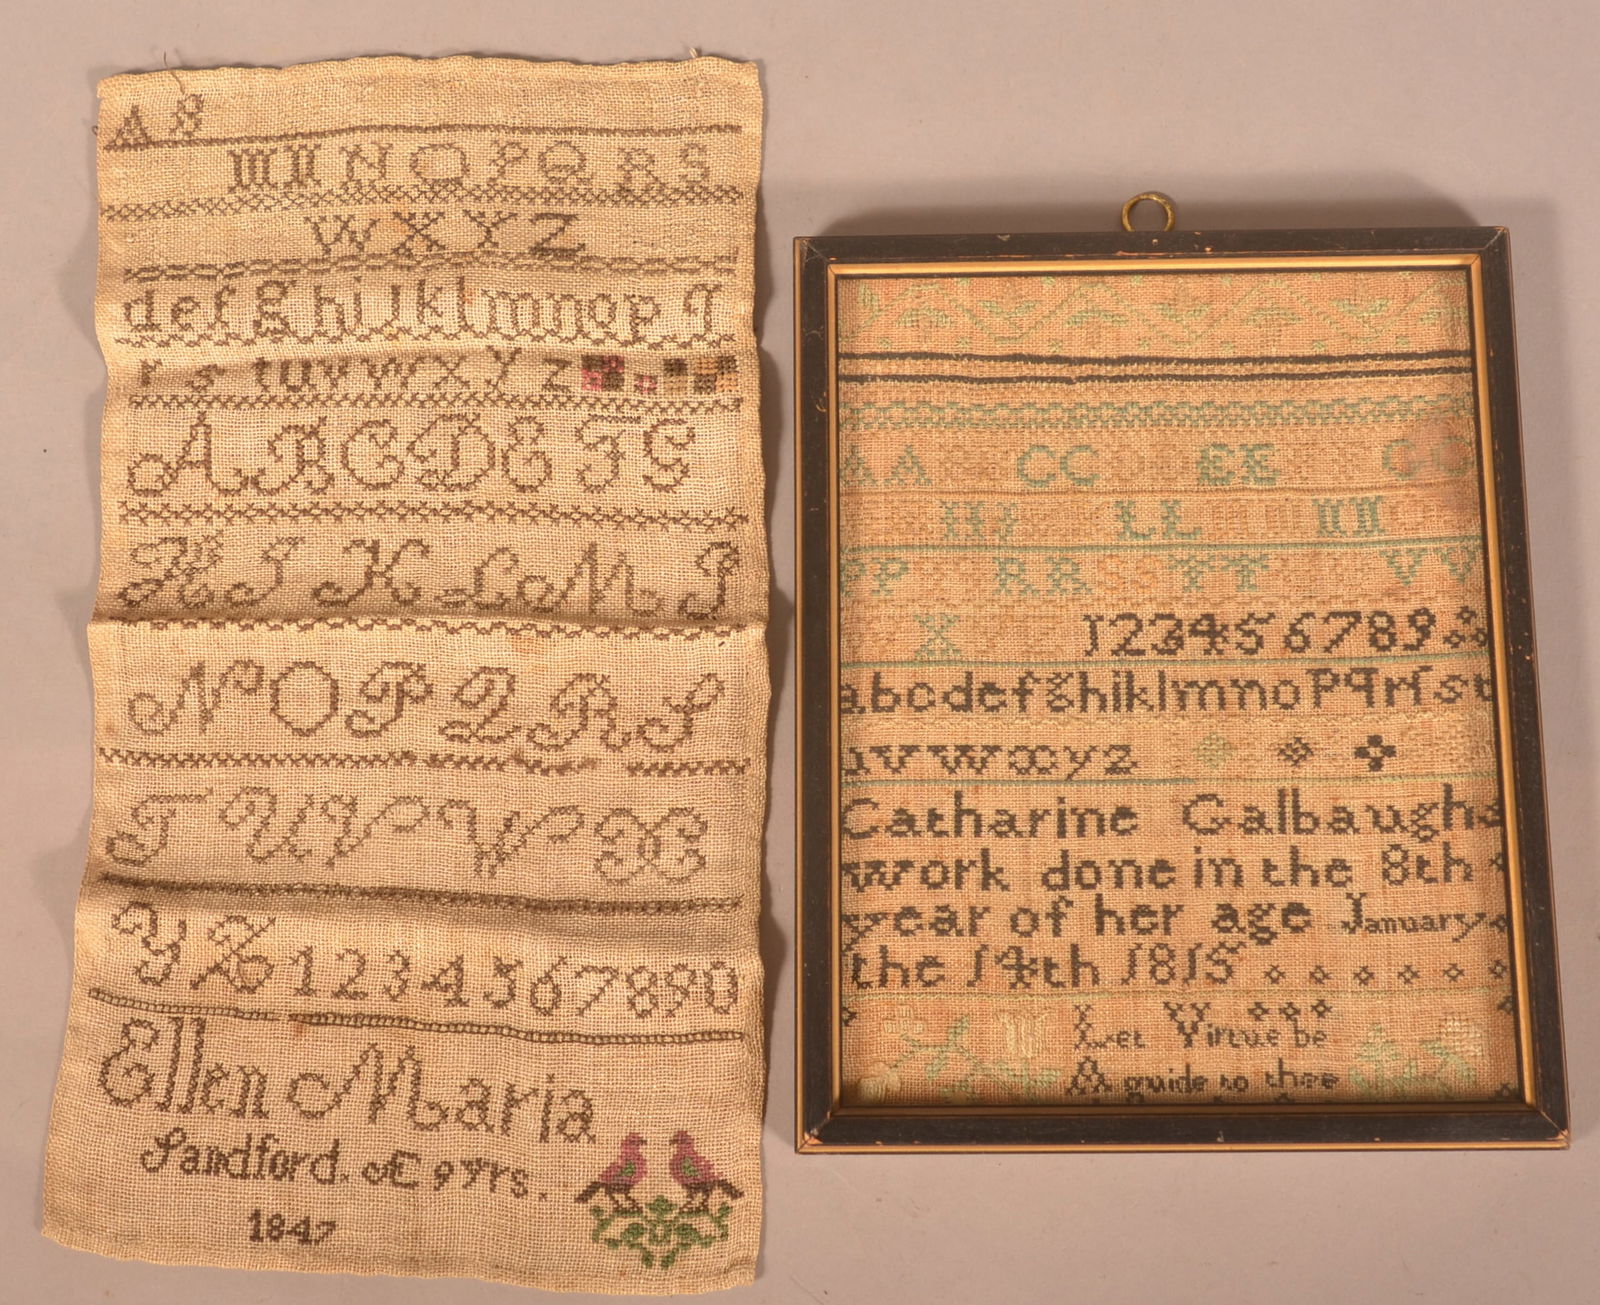 A S
M N O P Q R S
W X Y Z
d e f g h i j k l m n o p q
r s t u v w x y z
A B C D E F G
H I K L M J
N O P Q R S
T U V W X
Y Z 1 2 3 4 5 6 7 8 9 0
Ellen Maria
Sandford. Æ 9 yrs.
1847
A A C C E E G G
L L
P P R R S S T T V V
X 1 2 3 4 5 6 7 8 9
a b c d e f g h i k l m n o p q r ſ s t
u v w x y z
Catharine Galbaughs
work done in the 8th
year of her age January
the 14th 1815
Let Virtue be
A guide to thee